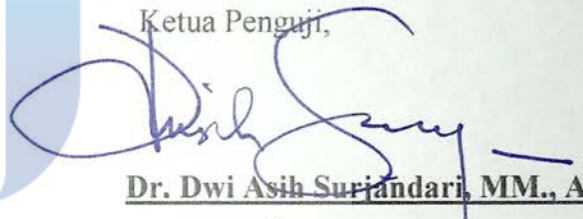 Ketua Penguji,
Dr. Dwi Asih Surjandari, MM., A